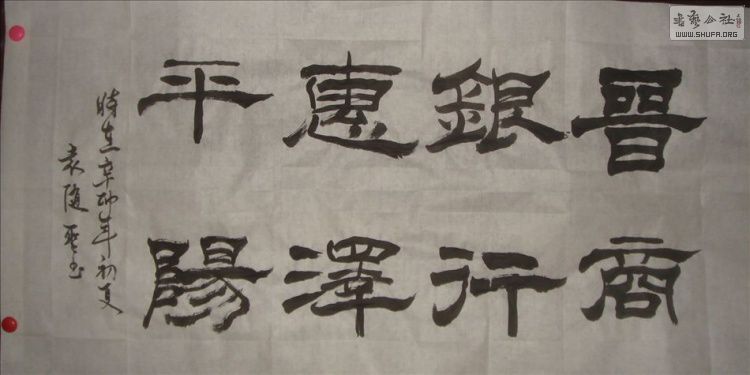 晉商
銀行
惠澤
平陽
時在辛卯年初夏
袁隨
書藝公社
WWW.SHUFA.ORG